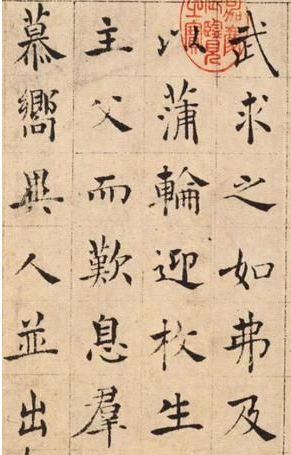 武求之如弗及
以蒲輪迎枚生
主父而歎息羣
慕嚮異人並出